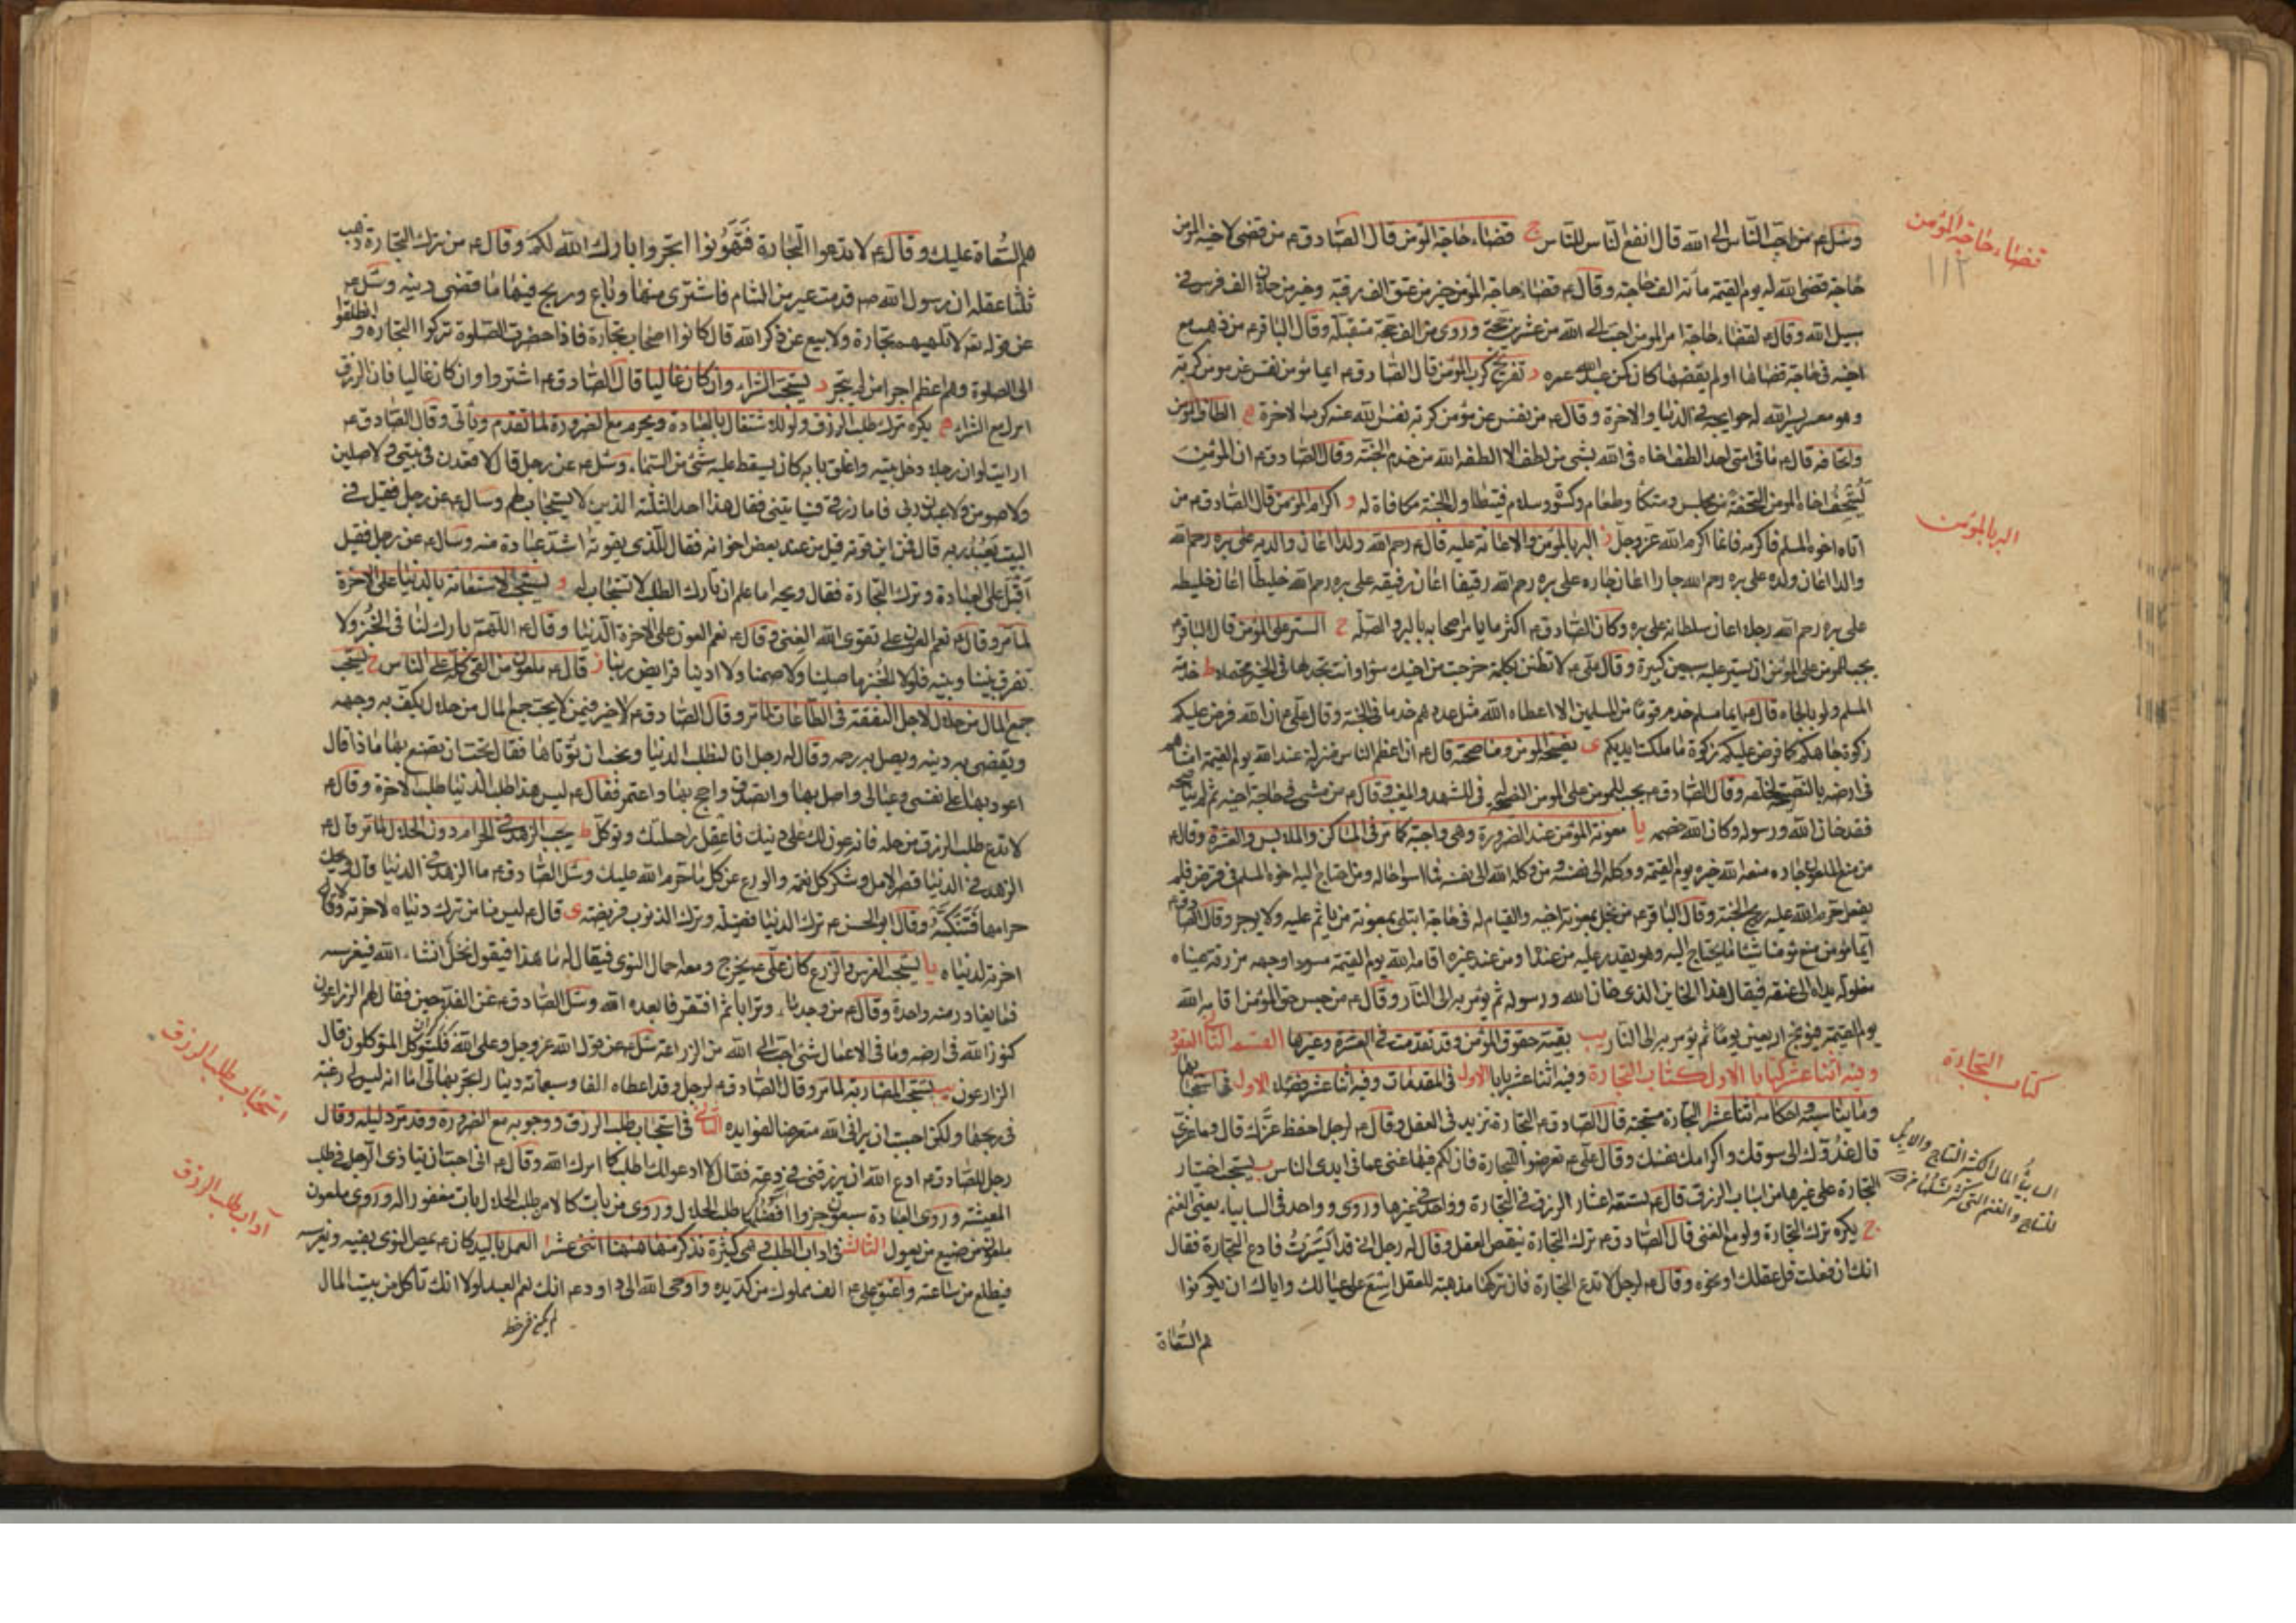 وسئل ع من احب الناس الى الله قال انفع الناس للناس ج قضاء حاجة المؤمن قال الصادق ع من قضى لاخيه المؤمن
حاجة قضى الله له يوم القيمة مائة الف حاجة وقال ع قضاء حاجة المؤمن خير من عتق الف رقبة وخير من حملان الف فرس في
سبيل الله وقال ع لقضاء حاجة امرء مؤمن احب الى الله من عشرين حجة وروى من الف حجة متقبلة وقال الباقر ع من ذهب مع
اخيه في حاجة قضاها او لم يقضها كان كمن عبد الله عمره د تفريج كرب المؤمن قال الصادق ع ايما مؤمن نفس عن مؤمن كربة
وهو معسر يسر الله له حوايجه في الدنيا والاخرة وقال ع من نفس عن مؤمن كربة نفس الله عنه كرب الاخرة ه الطاف المؤمن
واتحافه قال ع ما في امتى احد الطف اخاه في الله بشئ من لطف الا الطفه الله من خدم الجنة وقال الصادق ع ان المؤمن
ليتحف اخاه المؤمن التحفة من مجلس ومتكأ وطعام وكسوة وسلام فتطاول الجنة مكافاة له و اكرام المؤمن قال الصادق ع من
اتاه اخوه المسلم فاكرمه فانما اكرم الله عز وجل ز البر بالمؤمن والاعانة عليه قال ع رحم الله ولدا اعان والديه على بره رحم الله
والدا اعان ولده على بره رحم الله جارا اعان جاره على بره رحم الله رفيقا اعان رفيقه على بره رحم الله خليطا اعان خليطه
على بره رحم الله رجلا اعان سلطانه على بره وكان الصادق ع اكثر ما يامر اصحابه بالبر والصلة ح الستر على المؤمن قال الباقر ع
يجب للمؤمن على المؤمن ان يستر عليه سبعين كبيرة وقال على ع لا تظنن بكلمة خرجت من اخيك سوءا وانت تجد لها في الخير محتملا ط خدمة
المسلم ولو بالجاه قال ع ايما مسلم خدم قوما من المسلمين الا اعطاه الله مثل عددهم خدما في الجنة وقال على ع ان الله فرض عليكم
زكوة جاهكم كما فرض عليكم زكوة ما ملكت ايديكم ى نصيحة المؤمن ومناصحته قال ع ان اعظم الناس منزلة عند الله يوم القيمة امشاهم
في ارضه بالنصيحة لخلقه وقال الصادق ع يجب للمؤمن على المؤمن النصيحة له في المشهد والمغيب وقال ع من مشى في حاجة اخيه ثم لم يناصحه
فقد خان الله ورسوله وكان الله خصمه يا معونة المؤمن عند الضرورة وهي واجبة كما مر في المساكن والملابس والعشرة وقال ع
من منع الماعون جاره منعه الله خيره يوم القيمة ووكله الى نفسه ومن وكله الله الى نفسه فما اسوأ حاله ومن احتاج اليه اخوه المسلم في قرض فلم
يفعل حرم الله عليه ريح الجنة وقال الباقر ع من بخل بمعونة اخيه والقيام له في حاجة ابتلى بمعونة من يأثم عليه ولا يوجر وقال الصادق ع
ايما مؤمن منع مؤمنا شيئا مما يحتاج اليه وهو يقدر عليه من عنده او من عند غيره اقامه الله يوم القيمة مسودا وجهه مزرقة عيناه
مغلولة يداه الى عنقه فيقال هذا الخاين الذى خان الله ورسوله ثم يؤمر به الى النار وقال ع من حبس حق المؤمن اقامه الله
يوم القيمة يب بقية حقوق المؤمن وقد تقدمت في العشرة وغيرها القسم الثانى العقود
وفيه اثنا عشر كتابا الاول كتاب التجارة وفيه اثنا عشر بابا الاول في المقدمات وفيه اثنا عشر فصلا الاول في استحبابها
وما يناسبه واحكامه اثنا عشر ا التجارة مستحبة قال الصادق ع التجارة تزيد في العقل وقال ع لرجل احفظ عزك قال وما عزى
قال غدوك الى سوقك واكرامك نفسك وقال على ع تعرضوا للتجارة فان لكم فيها غنى عما في ايدى الناس ب يستحب اختيار
التجارة على غيرها من اسباب الرزق قال ع تسعة اعشار الرزق في التجارة وواحد في غيرها وروى وواحد في السابياء يعنى الغنم
ج يكره ترك التجارة ولو مع الغنى قال الصادق ع ترك التجارة ينقص العقل وقال له رجل انى قد ايسرت فادع التجارة فقال
انك ان فعلت قل عقلك او نحوه وقال ع لرجل لا تدع التجارة فان تركها مذهبة للعقل اسع على عيالك واياك ان يكونوا
هم السعاة
قضاء حاجة المؤمن
١١٢
البر بالمؤمن
كتاب التجارة
هم السعاة عليك وقال ع لا تدعوا التجارة فتهونوا اتجروا بارك الله لكم وقال ع من ترك التجارة ذهب
ثلثا عقله ان رسول الله ص قدمت عير من الشام فاشترى منها وباع وربح فيها ما قضى دينه وسئل ع
عن قوله تعـ لا تلهيهم تجارة ولا بيع عن ذكر الله قال كانوا اصحاب تجارة فاذا حضرت الصلوة تركوا التجارة وانطلقوا
الى الصلوة وهم اعظم اجرا ممن لم يتجر د يستحب الشراء وان كان غاليا قال الصادق ع اشتروا وان كان غاليا فان الرزق
ينزل مع الشراء ه يكره ترك طلب الرزق ولو للاشتغال بالعبادة ويحرم مع الضرورة لما تقدم ويأتى وقال الصادق ع
ارايت لو ان رجلا دخل بيته واغلق بابه كان يسقط عليه شئ من السماء وسئل ع عن رجل قال لاقعدن في بيتى ولاصلين
ولاصومن ولاعبدن ربى فاما رزقى فسياتينى فقال هذا احد الثلثة الذين لا يستجاب لهم وسأل ع عن رجل فقيل في
البيت يعبد ربه قال فمن اين قوته قيل من عند بعض اخوانه فقال للذى يقوته اشد عبادة منه وسأل ع عن رجل فقيل
اقبل على العبادة وترك التجارة فقال ويحه اما علم ان تارك الطلب لا يستجاب له و يستحب الاستعانة بالدنيا على الاخرة
لما مر وقال ع نعم العون على تقوى الله الغنى وقال ع نعم العون على الاخرة الدنيا وقال ع اللهم بارك لنا في الخبز ولا
تفرق بيننا وبينه فلولا الخبز ما صلينا ولا صمنا ولا ادينا فرايض ربنا ز قال ع ملعون من القى كله على الناس ح يستحب
جمع المال من حلال لاجل النفقة في الطاعات لما مر وقال الصادق ع لا خير فيمن لا يحب جمع المال من حلال يكف به وجهه
ويقضى به دينه ويصل به رحمه وقال له رجل انا لنطلب الدنيا ونحب ان نؤتاها فقال تحب ان تصنع بها ماذا قال
اعود بها على نفسى وعيالى واصل بها واتصدق واحج بها واعتمر فقال ع ليس هذا طلب الدنيا هذا طلب الاخرة وقال ع
لا تدع طلب الرزق من حله فانه عون لك على دينك فاعقل راحلتك وتوكل ط يجب الزهد في الحرام دون الحلال لما مر قال ع
الزهد في الدنيا قصر الامل وشكر كل نعمة والورع عن كل ما حرم الله عليك وسئل الصادق ع ما الزهد في الدنيا قال ويحك
حرامها فتنكبه وقال ابو الحسن ع ترك الدنيا فضيلة وترك الذنوب فريضة ى قال ع ليس منا من ترك دنياه لاخرته ولا
اخرته لدنياه يا يستحب الغرس والزرع كان على ع يخرج ومعه احمال النوى فيقال له ما هذا فيقول نخل انشاء الله فيغرسه
فما يغادر منه واحدة وقال ع من وجد ماء وترابا ثم افتقر فابعده الله وسئل الصادق ع عن الفلاحين فقال هم الزراعون
كنوز الله في ارضه وما في الاعمال شئ احب الى الله من الزراعة وسئل ع عن قول الله عز وجل وعلى الله فليتوكل المتوكلون قال
الزارعون يب يستحب المضاربة لما مر وقال الصادق ع لرجل وقد اعطاه الفا وسبعمائة دينار اتجر بها لى اما انه ليس لى رغبة
في ربحها ولكن احببت ان يرانى الله متعرضا لفوائده الثانى في استحباب طلب الرزق ووجوبه مع الضرورة وقد مر دليله وقال
رجل للصادق ع ادع الله ان يرزقنى في دعة فقال لا ادعو لك اطلب كما امرك الله وقال ع انى احب ان يتاذى الرجل في طلب
المعيشة وروى العبادة سبعون جزوا افضلها طلب الحلال وروى من بات كالا من طلب الحلال بات مغفورا له وروى ملعون
ملعون من ضيع من يعول الثالث في اداب الطلب وهي كثيرة نذكر منها ههنا اثنى عشر ا العمل باليد كان ع يمص النوى بفيه ويغرسه
فيطلع من ساعته واعتق على ع الف مملوك من كد يده واوحى الله الى داود ع انك نعم العبد لولا انك تأكل من بيت المال
استحباب طلب الرزق
آداب طلب الرزق